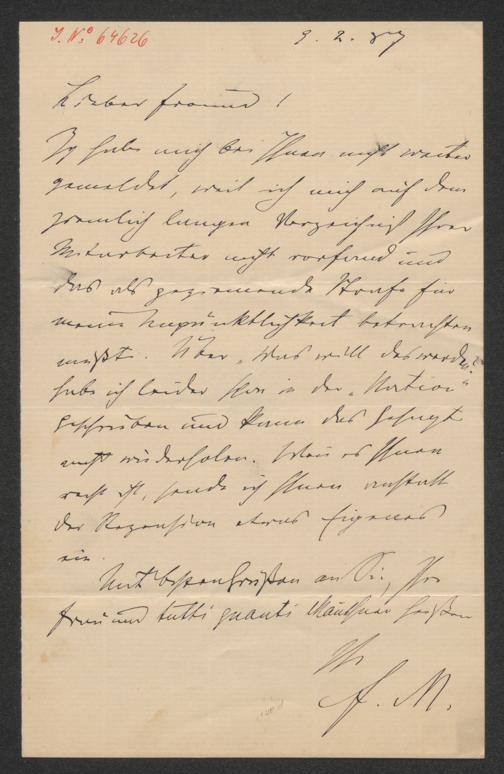 J. No 64626
9. 2. 87
Lieber Freund!
Ich habe mich bei Ihnen nicht weiter
gemeldet, weil ich mich auf dem
ziemlich langen Verzeichniß Ihrer
Mitarbeiter nicht vorfand und
das als geziemende Strafe für
meine Unpünktlichkeit betrachten
mußte. Über „Was will das werden“
habe ich leider schon in der „Nation“
geschrieben und kann das Gesagte
nicht wiederholen. Wenn es Ihnen
recht ist, sende ich Ihnen anstatt
der Rezension etwas Eigenes
ein.
Mit besten Grüßen an Sie, Ihre
Frau und tutti quanti Mauthner
Ihr
F. M.